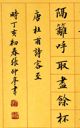 隔籬呼取盡餘杯
唐杜甫詩客至
時丁亥初春張仲書